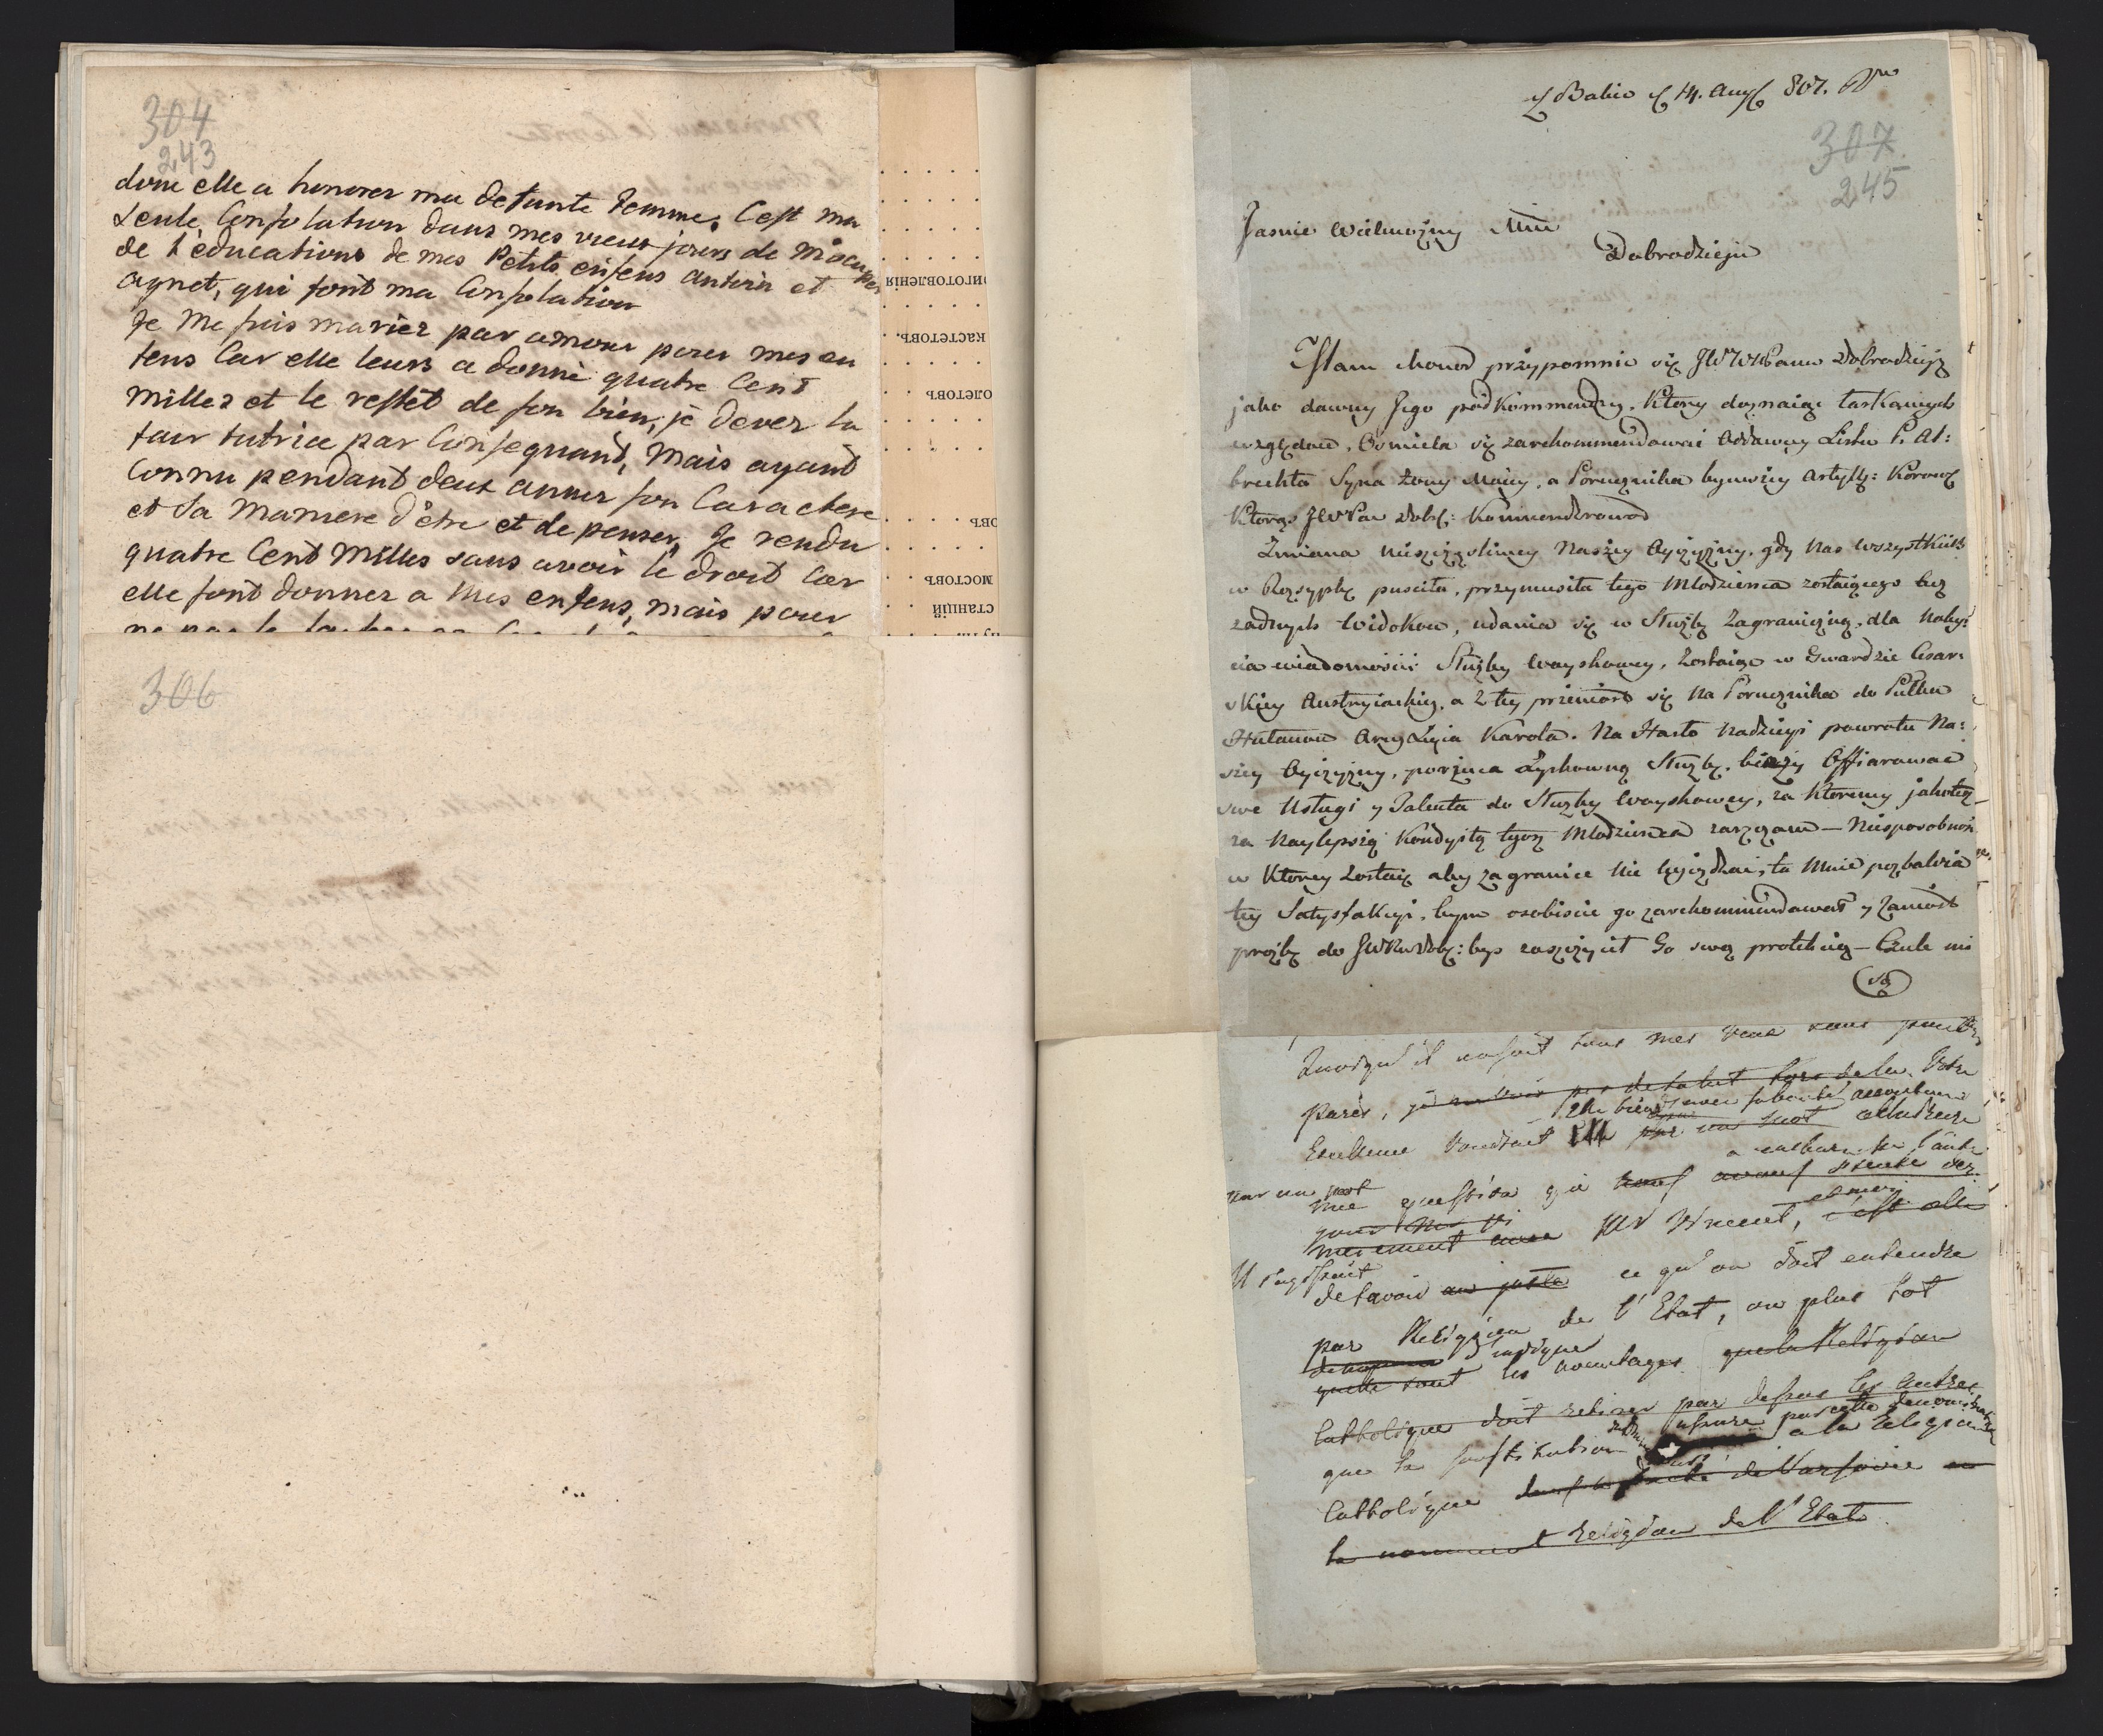 304
243
dont elle a honorer ma defunte femme, C'est ma
seule Consolation dans mes vieux jours de m'occuper
de l'educations de mes Petits enfens antoin et
agnet, qui font ma Consolation
Je Me suis marier par amour pour mes en
fens Car elle leurs a donné quatre Cent
milles et le restet de son bien, je dever la
fair tutrice par Consequand, Mais ayant
Connu pendant deux annes son Caractere
et Sa Maniere d'être et de penser, Je rendu
quatre Cent Milles sans avoir le droit Car
elle sont donner a Mes enfens, mais pour
иготовленія
кастетовъ
олетовъ
овъ
мостовъ
станцій
306
Z Babic d 14. Aug 807. R
307
245
Jasnie Wielmozny Mci
Dobrodzieju
Mam honor przypomnic się JWWPanu Dobrodzieju
jako dawny Jego podkommendny. Ktory doznaiąc łaskawych
wzglądow, Osmiela się zarekommendowac Oddawcę Listu P. Al:
brechta Syna Zony Moiey, a Porucznika bywszey Artylly: Koronney
Ktorą JWPan Dob: Kommenderował
Zmiana nieszczęsliwey Naszey Oyczyzny, gdy Nas wszystkich
w Rozsypkę pusciła, przymusiła tego Młodzienca zostaiącego bez
zadnych Widokow, udania się w Służbę Zagraniczną, dla Naby:
cia wiadomosci Służby Woyskowey, Zostaiąc w Gwardzie Cesar:
skiey Austryiackiey, a z tey przeniosł się na Porucznika do Pułku
Hułanow Arcy Xięcia Karola. Na Hasło Nadzieyi powrotu Na:
szey Oyczyzny, porzuca zyskowną Służbę, bieży Offiarowac
swe Usługi y Talenta do Służby Woyskowey, za Ktoremi jakotez
za Naylepszą Kondyitę tegoz Młodzienca zaręczam — Niesposobnosc
w Ktorey Zostaię aby za granice nie wyieżdzac, ta Mnie pozbawia
tey Satysfakcyi, bym osobiscie go zarekommendował y Zaniosł
prozbę do JWPana Dob: bys zaszczycił Go swą protekcią — Czule mi
są
Quoiqu'il
parès, je
Excellence voudroit
question qui
Mr Vincent, c'est elle
Il s'agissoit
de savoir au juste ce qu'on doit entendre
par Religion de l'Etat, ou plus tot
quelle sont les avantages que la Religion
Catholique doit retirer par dessus les autres
que la Constitution assure par cette denomination
a la Religion
Catholique de Varsovie
Religion de l'Etat